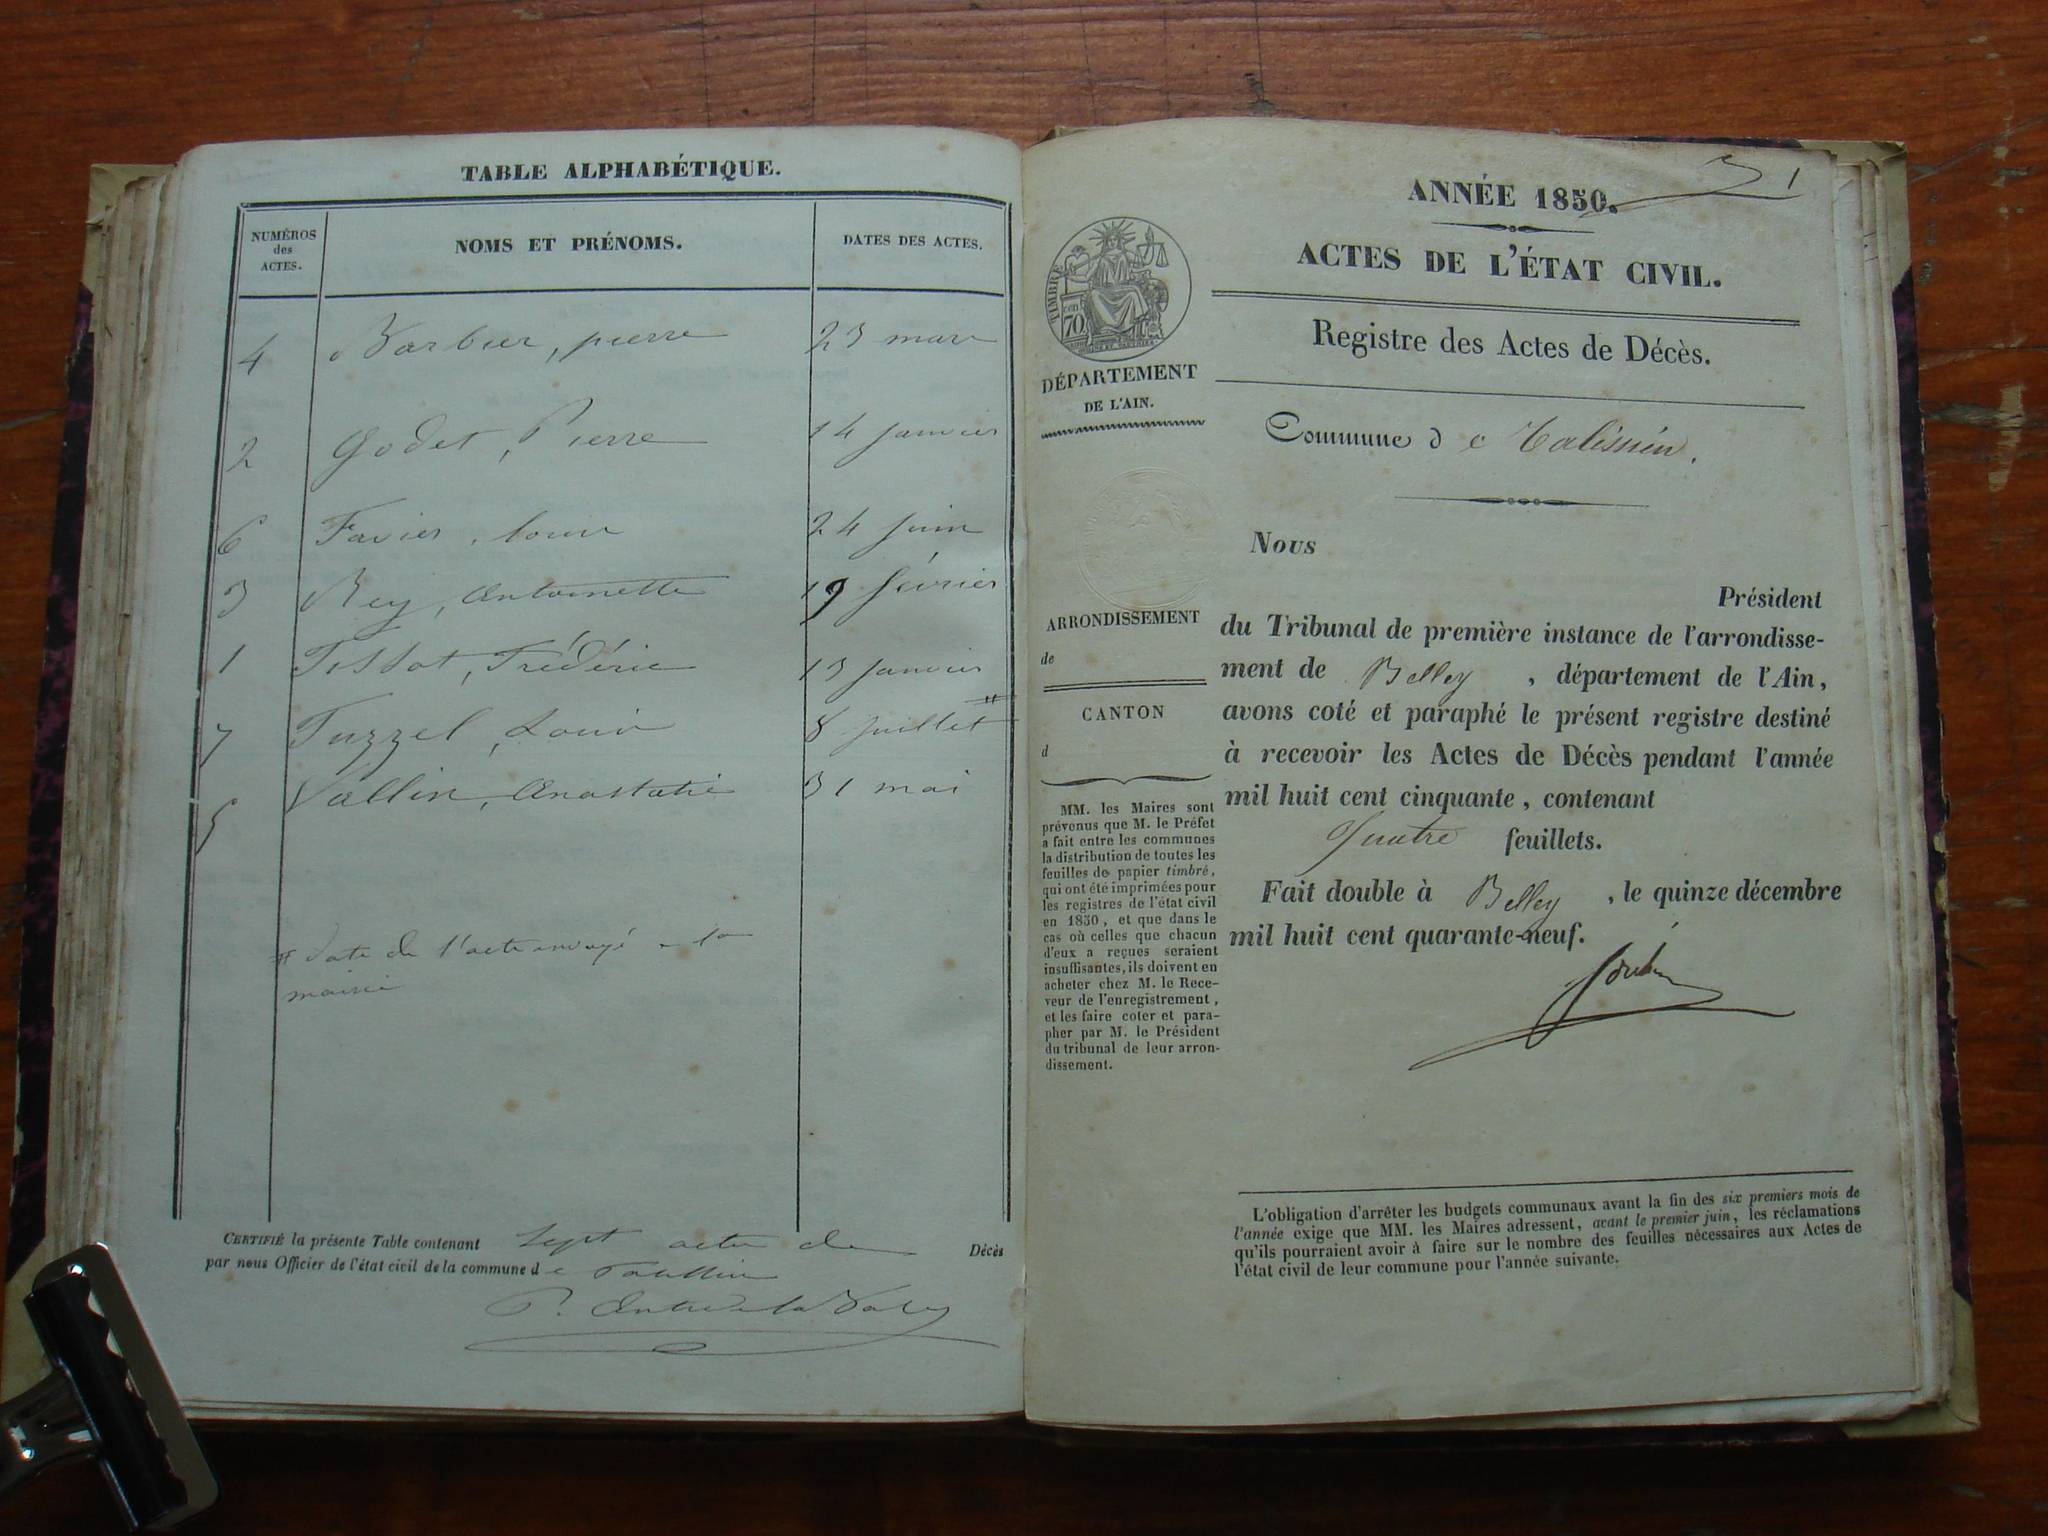 TABLE ALPHABÉTIQUE.
NUMÉROS
des
ACTES.
NOMS ET PRÉNOMS.
DATES DES ACTES.
4 Barbier, pierre 23 mars
2 Godet, Pierre 14 janvier
6 Favier, Louis 24 juin
3 Rey, Antoinette 19 février
1 Tissot, Frédéric 13 janvier
7 Tuzzel, Louis 8 juillet #
5 Vallin, Anastatie 31 mai
# date de l'acte envoyé a la
mairie
CERTIFIÉ la présente Table contenant sept actes de Décès
par nous Officier de l'état civil de la commune d e Talissieu
1
ANNÉE 1850.
ACTES DE L'ÉTAT CIVIL.
TIMBRE
70
DÉPARTEMENT
DE L'AIN.
Registre des Actes de Décès.
Commune d e Talissieu.
Nous
Président
du Tribunal de première instance de l'arrondisse-
ment de Belley, département de l'Ain,
avons coté et paraphé le présent registre destiné
à recevoir les Actes de Décès pendant l'année
mil huit cent cinquante, contenant
Quatre feuillets.
Fait double à Belley, le quinze décembre
mil huit cent quarante-neuf.
ARRONDISSEMENT
de
CANTON
d
MM. les Maires sont
prévenus que M. le Préfet
a fait entre les communes
la distribution de toutes les
feuilles de papier timbré,
qui ont été imprimées pour
les registres de l'état civil
en 1850, et que dans le
cas où celles que chacun
d'eux a reçues seraient
insuffisantes, ils doivent en
acheter chez M. le Rece-
veur de l'enregistrement,
et les faire coter et para-
pher par M. le Président
du tribunal de leur arron-
dissement.
L'obligation d'arrêter les budgets communaux avant la fin des six premiers mois de
l'année exige que MM. les Maires adressent, avant le premier juin, les réclamations
qu'ils pourraient avoir à faire sur le nombre des feuilles nécessaires aux Actes de
l'état civil de leur commune pour l'année suivante.